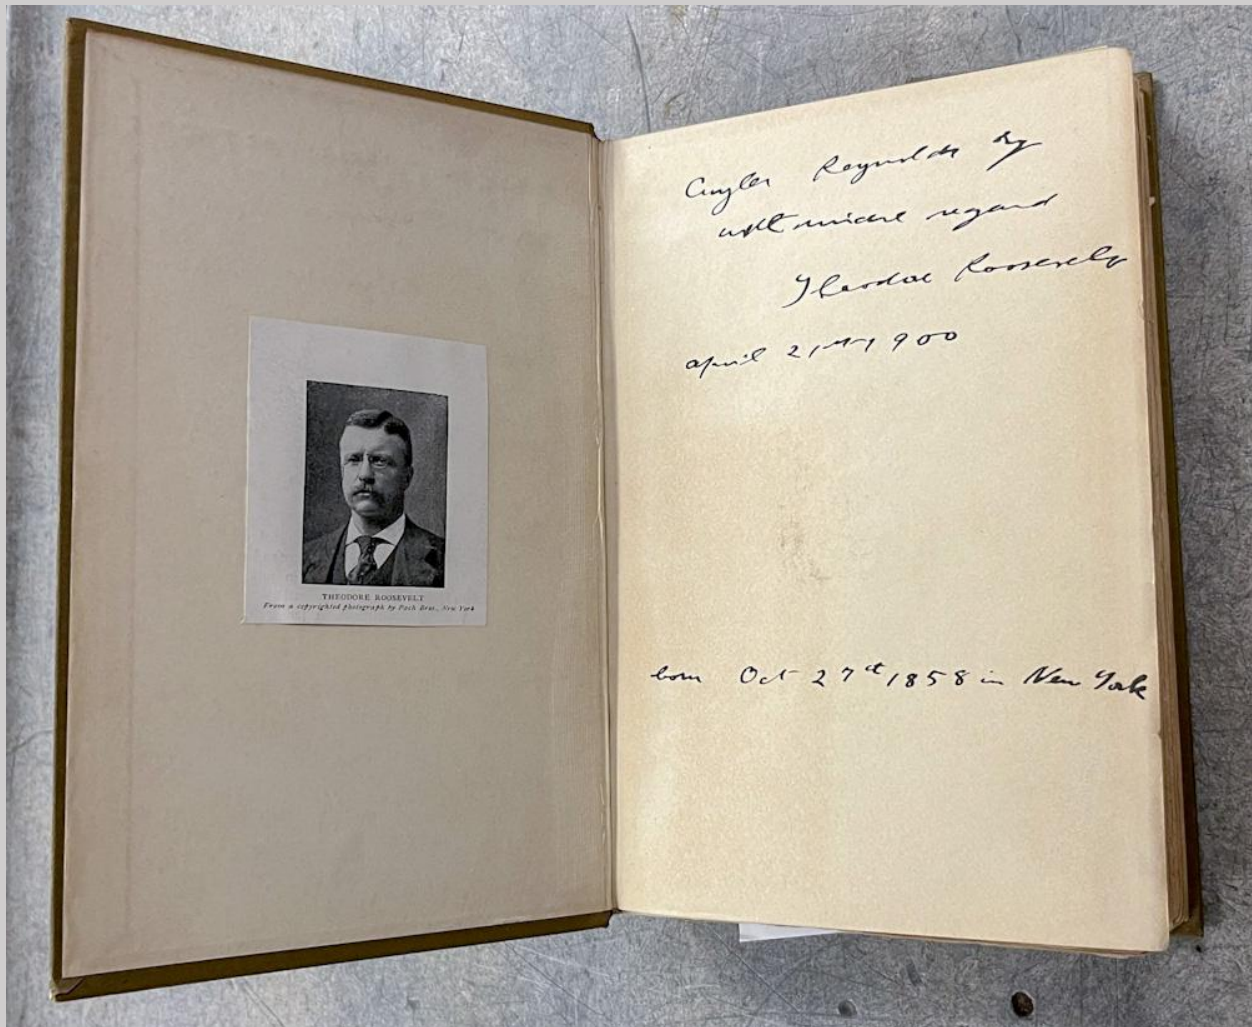 THEODORE ROOSEVELT
From a copyrighted photograph by Pach Bros., New York
Cuyler Reynolds
with regard
Theodore Roosevelt
April 21st 1900
born Oct 27th 1858 in New York